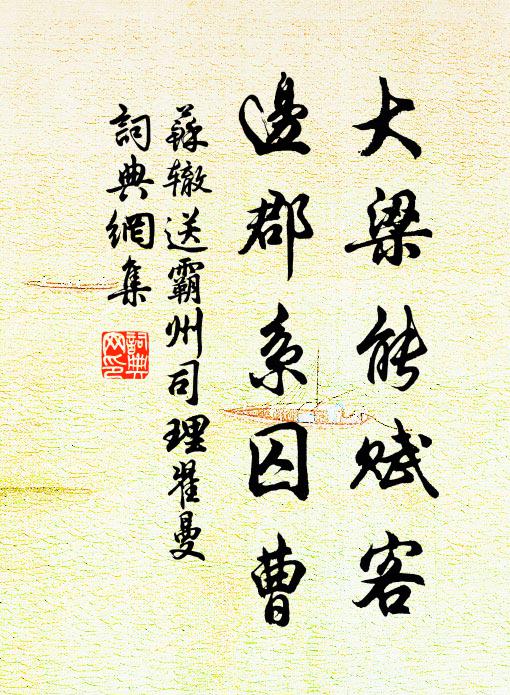 大梁能赋客
邊郡系囚曹
蘇辙送霸州司理翟曼
詞典網集
詞典网印